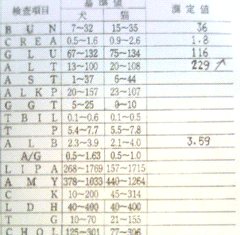 検査項目 基準値 測定値
犬 猫
BUN 7~32 15~35 36
CREA 0.5~1.6 0.9~2.6 1.8
GLU 67~132 75~134 116
ALT 13~100 20~108 229 ↗
AST 1~37 6~44
ALKP 20~157 23~107
GGT 5~25 0~10
TBIL 0.1~0.6 0.1~0.5
TP 5.4~7.7 5.5~7.8
ALB 2.3~3.9 2.1~4.0 3.59
A/G 0.5~1.63 0.5~1.0
LIPA 268~1769 157~1715
AMY 378~1033 440~1264
C 10~200 45~314
LDH 40~400 40~400
TG 10~70 21~155
CHOL 125~301